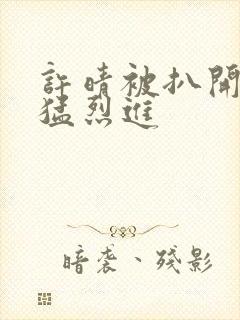 許晴被扒開
猛烈進
暗袭、殘影